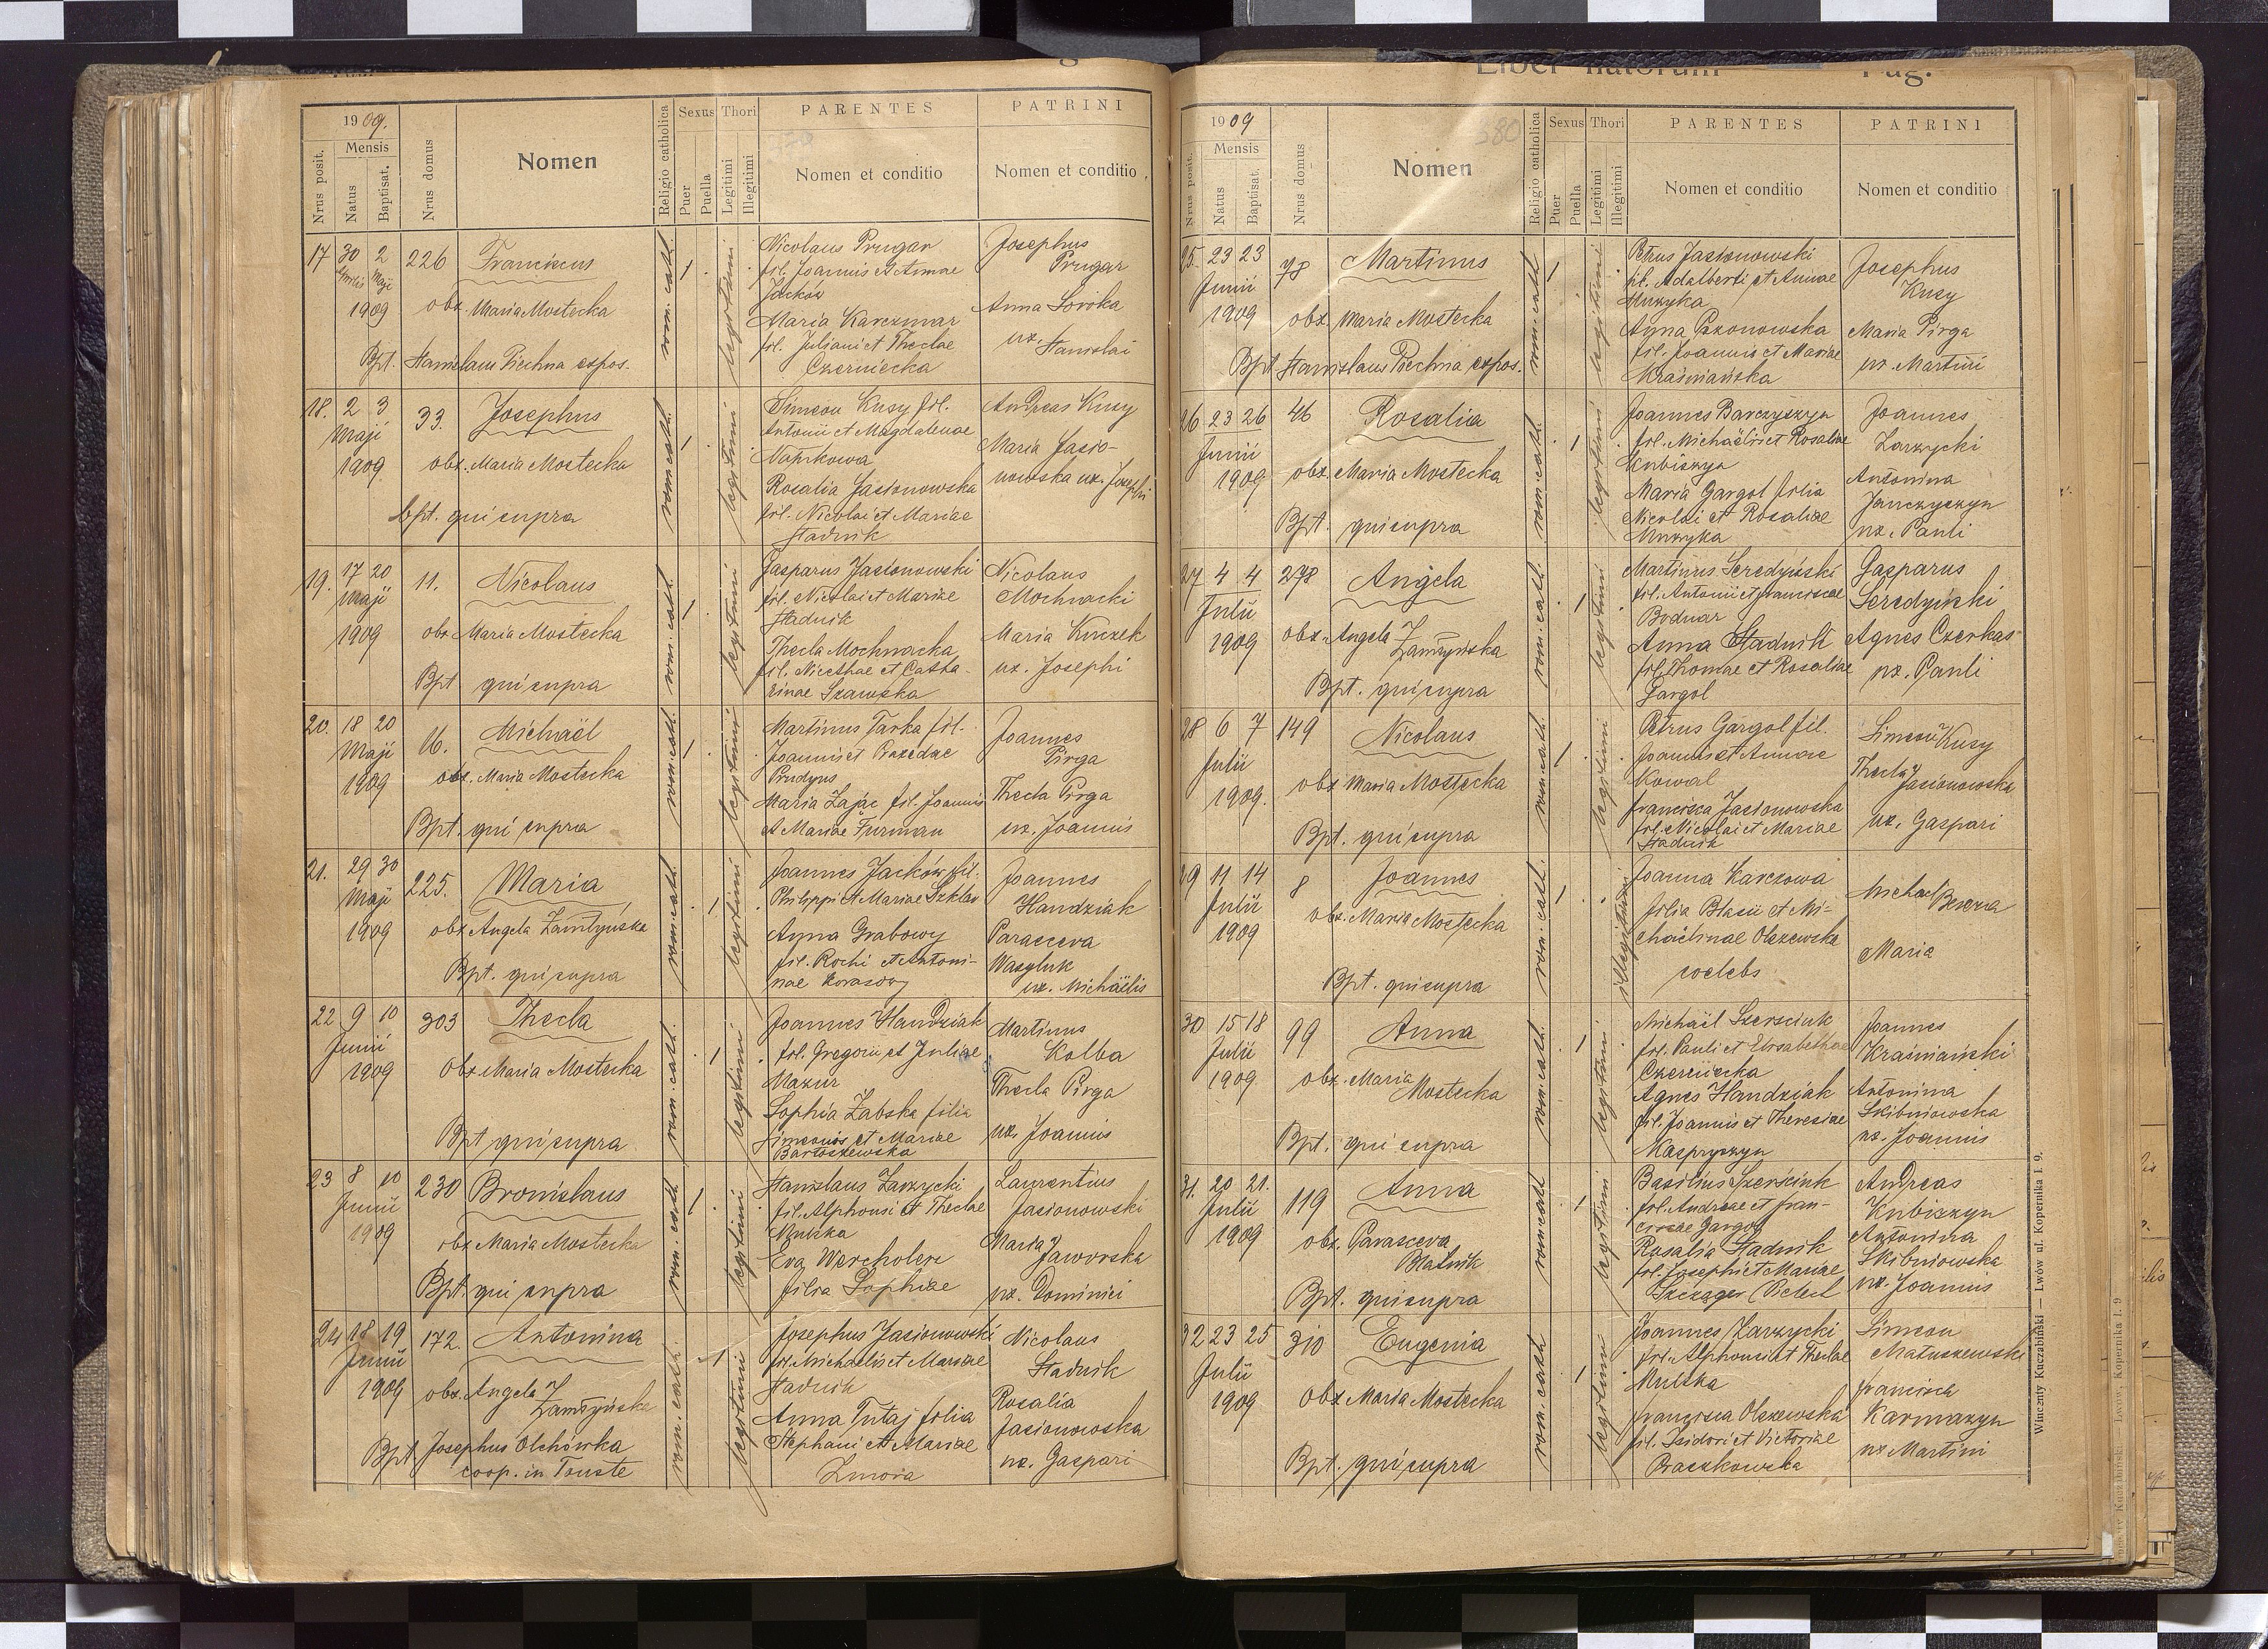 1909.
Nrus posit.
Mensis
Natus
Baptisat.
Nrus domus
Nomen
Religio catholica
Sexus
Puer
Puella
Thori
Legitimi
Illegitimi
PARENTES
Nomen et conditio
PATRINI
Nomen et conditio
17 30 2 226 Franciscus rom. cath. 1 legitimi
Aprilis Maji
1909 obx. Maria Mostecka
Bpt. Stanislaus Piechna expos.
Nicolaus Prugar
fil. Joannis et Annae
Jacków
Maria Karczmar
fil. Juliani et Theclae
Czerniecka
Josephus
Prugar
Anna Soroka
ux. Stanislai
18. 2 3 33. Josephus rom. cath. 1 legitimi
Maji
1909. obx. Maria Mostecka
bpt. qui supra
Simeon Kusy fil.
Antonii et Magdalenae
Rosalia Jasionowska
fil. Nicolai et Mariae
Stadnik
Andreas Kusy
Maria Jasio-
nowska ux. Josephi
19. 17 20 11. Nicolaus rom. cath. 1 legitimi
Maji
1909 obx Maria Mostecka
Bpt qui supra
Gasparus Jasionowski
fil. Nicolai et Mariae
Stadnik
Thecla Mochnacka
fil. Nicethae et Catha-
rinae Szawska
Nicolaus
Mochnacki
Maria Kuczek
ux. Josephi
20. 18 20 16. Michaël rom. cath. 1 legitimi
Maji
1909 obx. Maria Mostecka
Bpt. qui supra
Martinus Tarka fil.
Joannis et Praxedae
Prudyus
Maria Zając fil. Joannis
et Mariae Furman
Joannes
Pirga
Thecla Pirga
ux. Joannis
21. 29 30 225. Maria rom. cath. 1 legitimi
Maji
1909 obx Angela Zamłyńska
Bpt. qui supra
Joannes Jacków fil.
Philippi et Mariae Szklar
Anna Grabowy
fil. Rochi et Antoni-
nae
Joannes
Handziak
Parasceva
Wasyluk
ux. Michaëlis
22 9 10 303 Thecla rom. cath. 1 legitimi
Junii
1909 obx Maria Mostecka
Bpt qui supra
Joannes Handziak
fil. Gregorii et Juliae
Mazur
Sophia Zabska filia
Simeonis et Mariae
Bartoszewska
Martinus
Kolba
Thecla Pirga
ux. Joannis
23 8 10 230 Bronislaus rom. cath 1 legitimi
Junii
1909 obx Maria Mostecka
Bpt. qui supra
Stanislaus Zarzycki
fil. Alphonsi et Theclae
Mulska
Eva Wercholere
filia Sophiae
Laurentius
Jasionowski
Maria Jaworska
ux. Dominici
24 18 19 172. Antonina rom. cath. 1 legitimi
Junii
1909 obx. Angela
Zamłyńska
Bpt Josephus Olchówka
coop. in Touste
Josephus Jasionowski
fil. Michaelis et Mariae
Stadnik
Anna Tutaj filia
Stephani et Mariae
Zmora
Nicolaus
Stadnik
Rosalia
Jasionowska
ux. Gaspari
Liber natorum Pag.
1909
Nrus posit.
Mensis
Natus
Baptisat.
Nrus domus
Nomen
380
Religio catholica
Sexus
Puer
Puella
Thori
Legitimi
Illegitimi
PARENTES
Nomen et conditio
PATRINI
Nomen et conditio
25. 23 23 78 Martinus rom. cath 1 legitimi
Junii
1909 obx. Maria Mostecka
Bpt Stanislaus Piechna expos.
Petrus Jasionowski
fil. Adalberti et Annae
Muzyka
Anna
fil. Joannis et Mariae
Kraśniańska
Josephus
Kusy
Maria Pirga
ux. Martini
26. 23 26 46 Rosalia rom. cath. 1 legitimi
Junii
1909 obx. Maria Mostecka
Bpt. qui supra
Joannes Barczyszyn
fil. Michaëlis et Rosaliae
Kubiszyn
Maria Gargol filia
Nicolai et Rosaliae
Muzyka
Joannes
Zarzycki
Antonina
Janczyszyn
ux. Pauli
27 4 4 278 Angela rom. cath. 1 legitimi
Julii
1909 obx. Angela
Zamłyńska
Bpt. qui supra
Martinus Seredyński
fil. Antonii et Franciscae
Bodnar
Anna Stadnik
fil. Thomae et Rosaliae
Gargol
Gasparus
Seredyński
Agnes Czerkas
ux. Pauli
28 6 7 149 Nicolaus rom. cath. 1 legitimi
Julii
1909. obx Maria Mostecka
Bpt. qui supra
Petrus Gargol fil.
Joannis et Annae
Kowal
Francisca Jasionowska
fil. Nicolai et Mariae
Stadnik
Simeon Kusy
Thecla
Jasionowska
ux. Gaspari
29 11 14 8 Joannes rom. cath. 1 illegitimi
Julii
1909 obx. Maria Mostecka
Bpt. qui supra
Joanna Karczowa
filia Blasii et Mi-
chaëlinae Olszewska
coelebs
Michael Bereza
Maria
30 15 18 99 Anna rom. cath. 1 legitimi
Julii
1909. obx. Maria
Mostecka
Bpt. qui supra
Michaël Szersciuk
fil. Pauli et Elisabethae
Czerniecka
Agnes Handziak
fil. Joannis et Theresiae
Kaspryszyn
Joannes
Kraśniański
Antonina
Skibniowska
ux. Joannis
31. 20 21. 119 Anna rom cath 1 legitimi
Julii
1909 obx. Parasceva
Blatnik
Bpt. qui supra
Basilius Szersciuk
fil. Andreae et Fran-
ciscae Gargol
Rosalia Stadnik
fil. Josephi et Mariae
Andreas
Kubiszyn
Antonina
Skibniowska
ux. Joannis
32 23 25 310 Eugenia rom. cath 1 legitimi
Julii
1909 obx. Maria Mostecka
Bpt. qui supra
Joannes Zarzycki
fil. Alphonsi et Theclae
Mulska
Francisca Olszewska
fil. Isidori et Victoriae
Praczkowska
Simeon
Matuszewski
Francisca
Karmazyn
ux Martini
Winczenty Kuczabiński — Lwów ul. Kopernika l. 9.